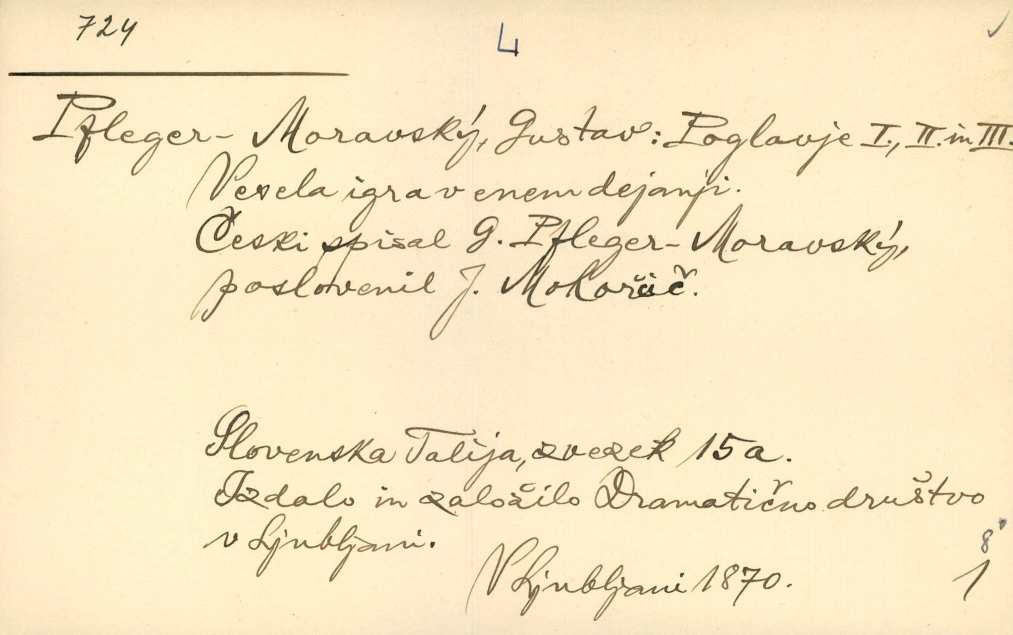 724
4
Pfleger - Moravský, Gustav: Poglavje I., II. in III.
Vesela igra v enem dejanji.
Česki spisal G. Pfleger - Moravský,
poslovenil J. Mokorčič.
Slovenska Talija, zvezek 15a.
Izdalo in založilo Dramatično društvo
v Ljubljani.
V Ljubljani 1870.
8°
1